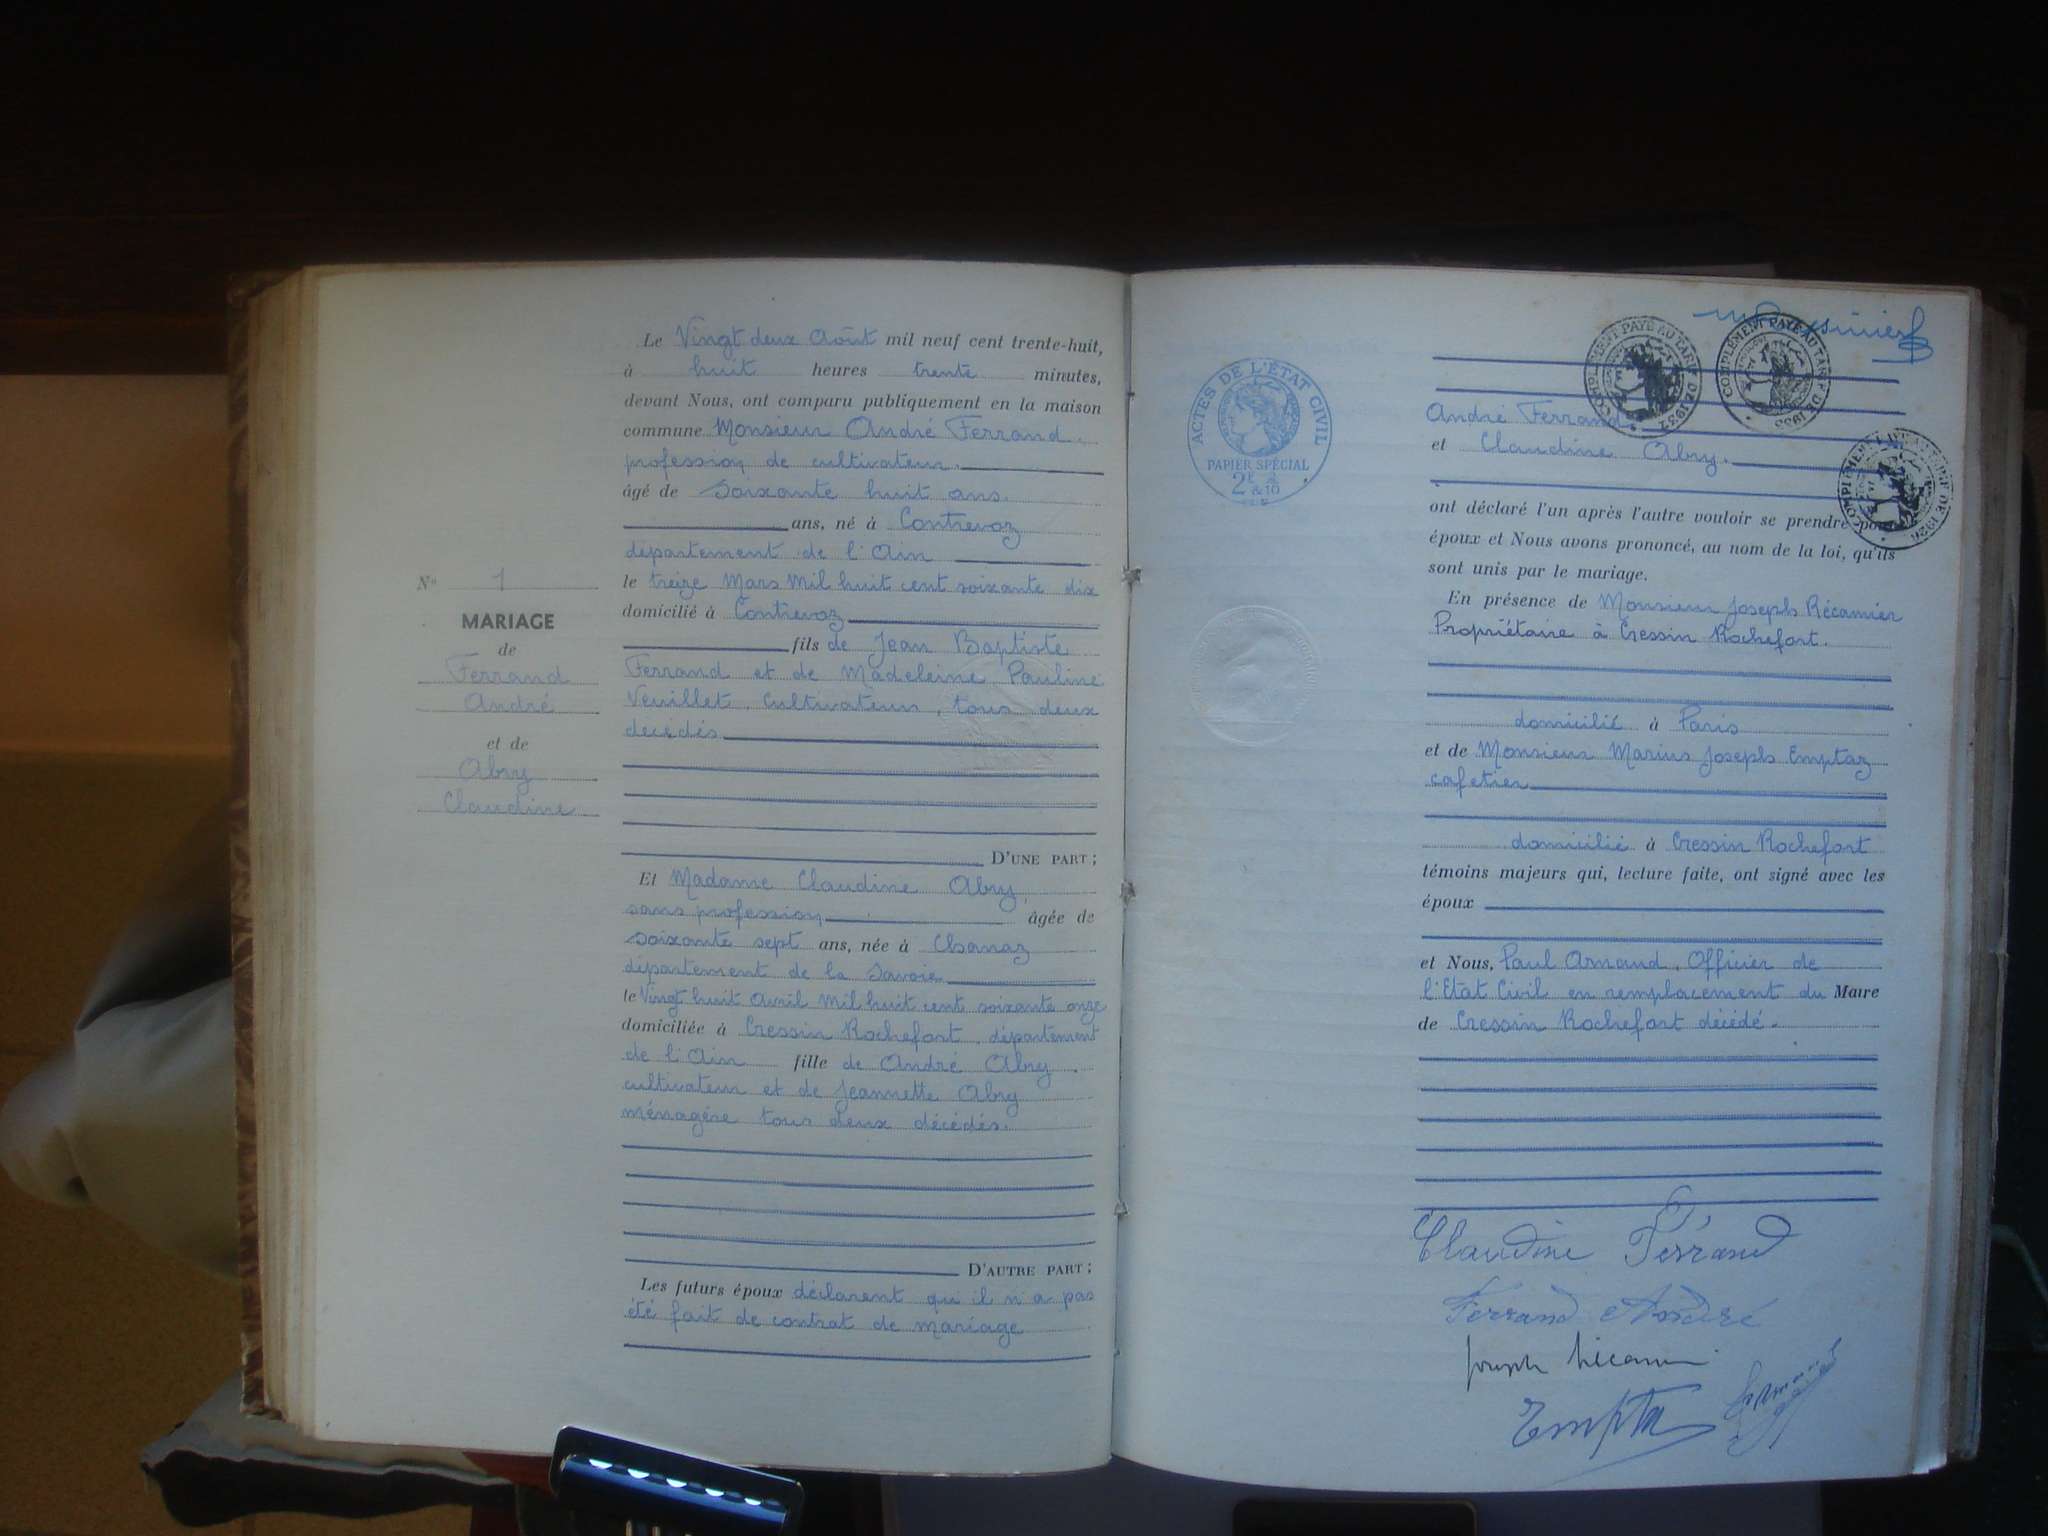 Le Vingt deux Août mil neuf cent trente-huit,
à huit heures trente minutes,
devant Nous, ont comparu publiquement en la maison
commune Monsieur André Ferrand,
profession de cultivateur.
âgé de Soixante huit ans.
ans, né à Contrevoz
département de l'Ain
le treize Mars Mil huit cent soixante dix
domicilié à Contrevoz
fils de Jean Baptiste
Ferrand et de Madeleine Pauline
Veuillet, Cultivateurs, tous deux
décédés
D'UNE PART ;
Et Madame Claudine Abry,
sans profession, âgée de
soixante sept ans, née à Chanaz
département de la Savoie
le Vingt huit Avril Mil huit cent soixante onze
domiciliée à Cressin Rochefort, département
de l'Ain fille de André Abry,
cultivateur et de Jeannette Abry
ménagère tous deux décédés.
D'AUTRE PART ;
Les futurs époux déclarent qu'il n'a pas
été fait de contrat de mariage
No 1
MARIAGE
de
Ferrand
André
et de
Abry
Claudine
ACTES DE L'ÉTAT CIVIL
PAPIER SPÉCIAL
COMPLÉMENT PAYÉ AU TARIF DE 1937
COMPLÉMENT PAYÉ AU TARIF DE 1935
COMPLÉMENT PAYÉ AU TARIF DE 1926
André Ferrand
et Claudine Abry.
ont déclaré l'un après l'autre vouloir se prendre pour
époux et Nous avons prononcé, au nom de la loi, qu'ils
sont unis par le mariage.
En présence de Monsieur Joseph Récamier
Propriétaire à Cressin Rochefort.
domicilié à Paris
et de Monsieur Marius Joseph Emptaz
cafetier
domicilié à Cressin Rochefort
témoins majeurs qui, lecture faite, ont signé avec les
époux
et Nous, Paul Arnaud, Officier de
l'Etat Civil en remplacement du Maire
de Cressin Rochefort décédé.
Claudine Ferrand
Ferrand André
Joseph Récamier